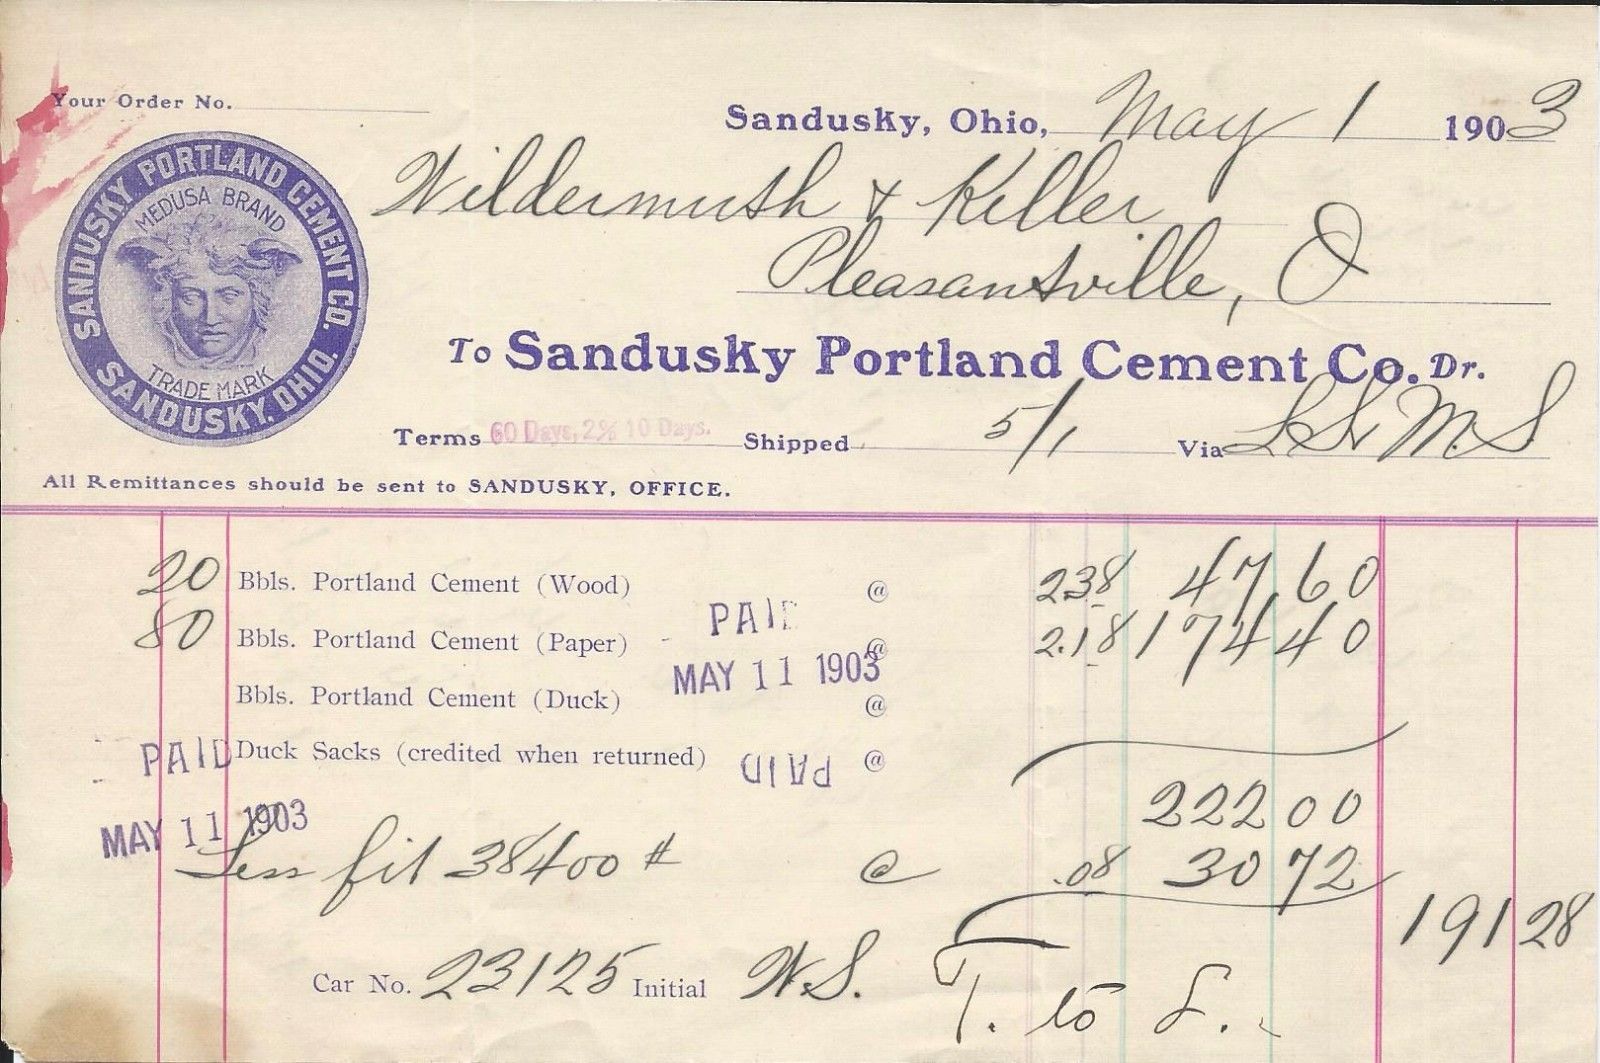 Your Order No.
Sandusky, Ohio, May 1 1903
SANDUSKY PORTLAND CEMENT CO.
MEDUSA BRAND
TRADE MARK
SANDUSKY, OHIO.
Wildermuth & Keller
Pleasantville, O
To Sandusky Portland Cement Co. Dr.
Terms 60 Days, 2% 10 Days. Shipped 5/1 Via M.S
All Remittances should be sent to SANDUSKY, OFFICE.
20 Bbls. Portland Cement (Wood) @ 2.38 47 60
80 Bbls. Portland Cement (Paper) @ 2.18 174 40
PAID
MAY 11 1903
Bbls. Portland Cement (Duck) @
Duck Sacks (credited when returned) @
PAID
PAID
MAY 11 1903
222 00
Less frt 38400 # @ .08 30 72
191 28
Car No. 23125 Initial W.S. T. to